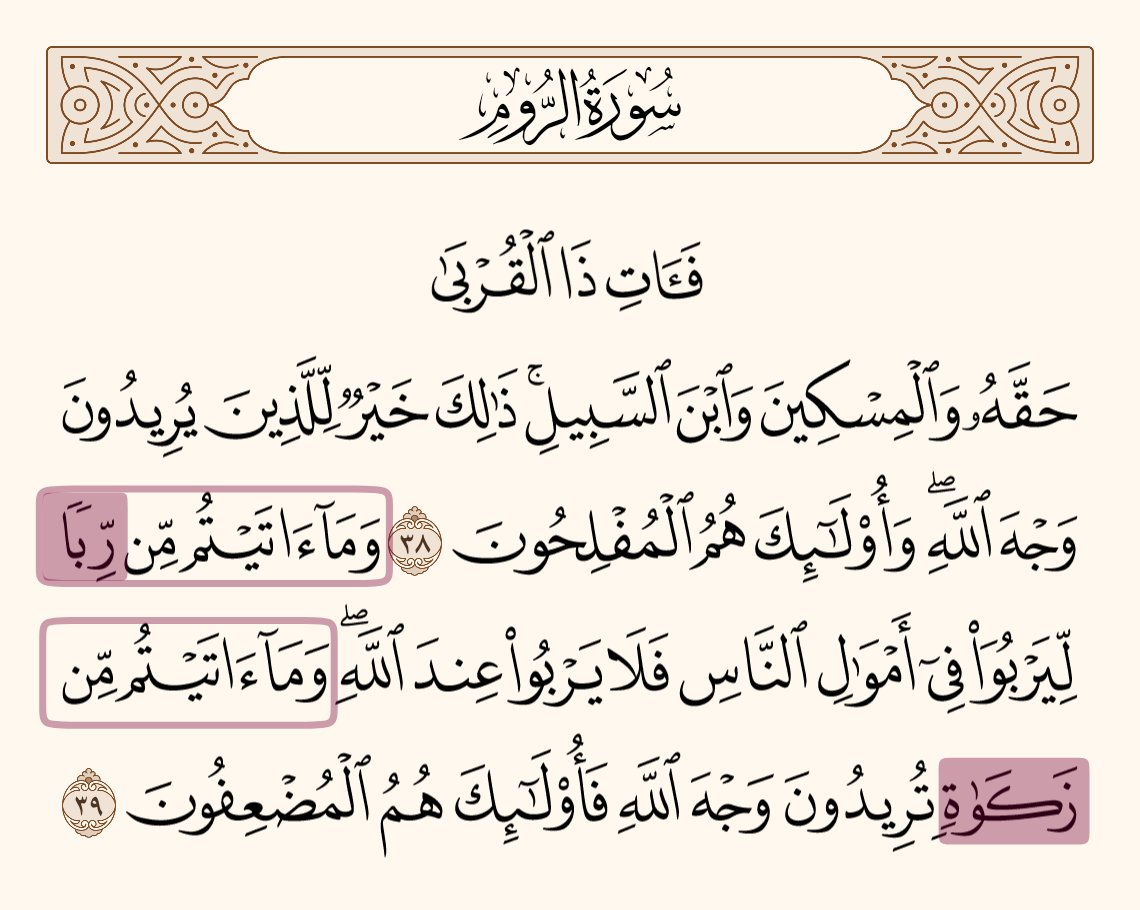 سُورَةُ الرُّومِ
فَـَٔاتِ ذَا ٱلْقُرْبَىٰ
حَقَّهُۥ وَٱلْمِسْكِينَ وَٱبْنَ ٱلسَّبِيلِ ۚ ذَٰلِكَ خَيْرٌ لِّلَّذِينَ يُرِيدُونَ
وَجْهَ ٱللَّهِ ۖ وَأُو۟لَٰٓئِكَ هُمُ ٱلْمُفْلِحُونَ ٣٨ وَمَآ ءَاتَيْتُم مِّن رِّبًا
لِّيَرْبُوَا۟ فِىٓ أَمْوَٰلِ ٱلنَّاسِ فَلَا يَرْبُوا۟ عِندَ ٱللَّهِ ۖ وَمَآ ءَاتَيْتُم مِّن
زَكَوٰةٍ تُرِيدُونَ وَجْهَ ٱللَّهِ فَأُو۟لَٰٓئِكَ هُمُ ٱلْمُضْعِفُونَ ٣٩